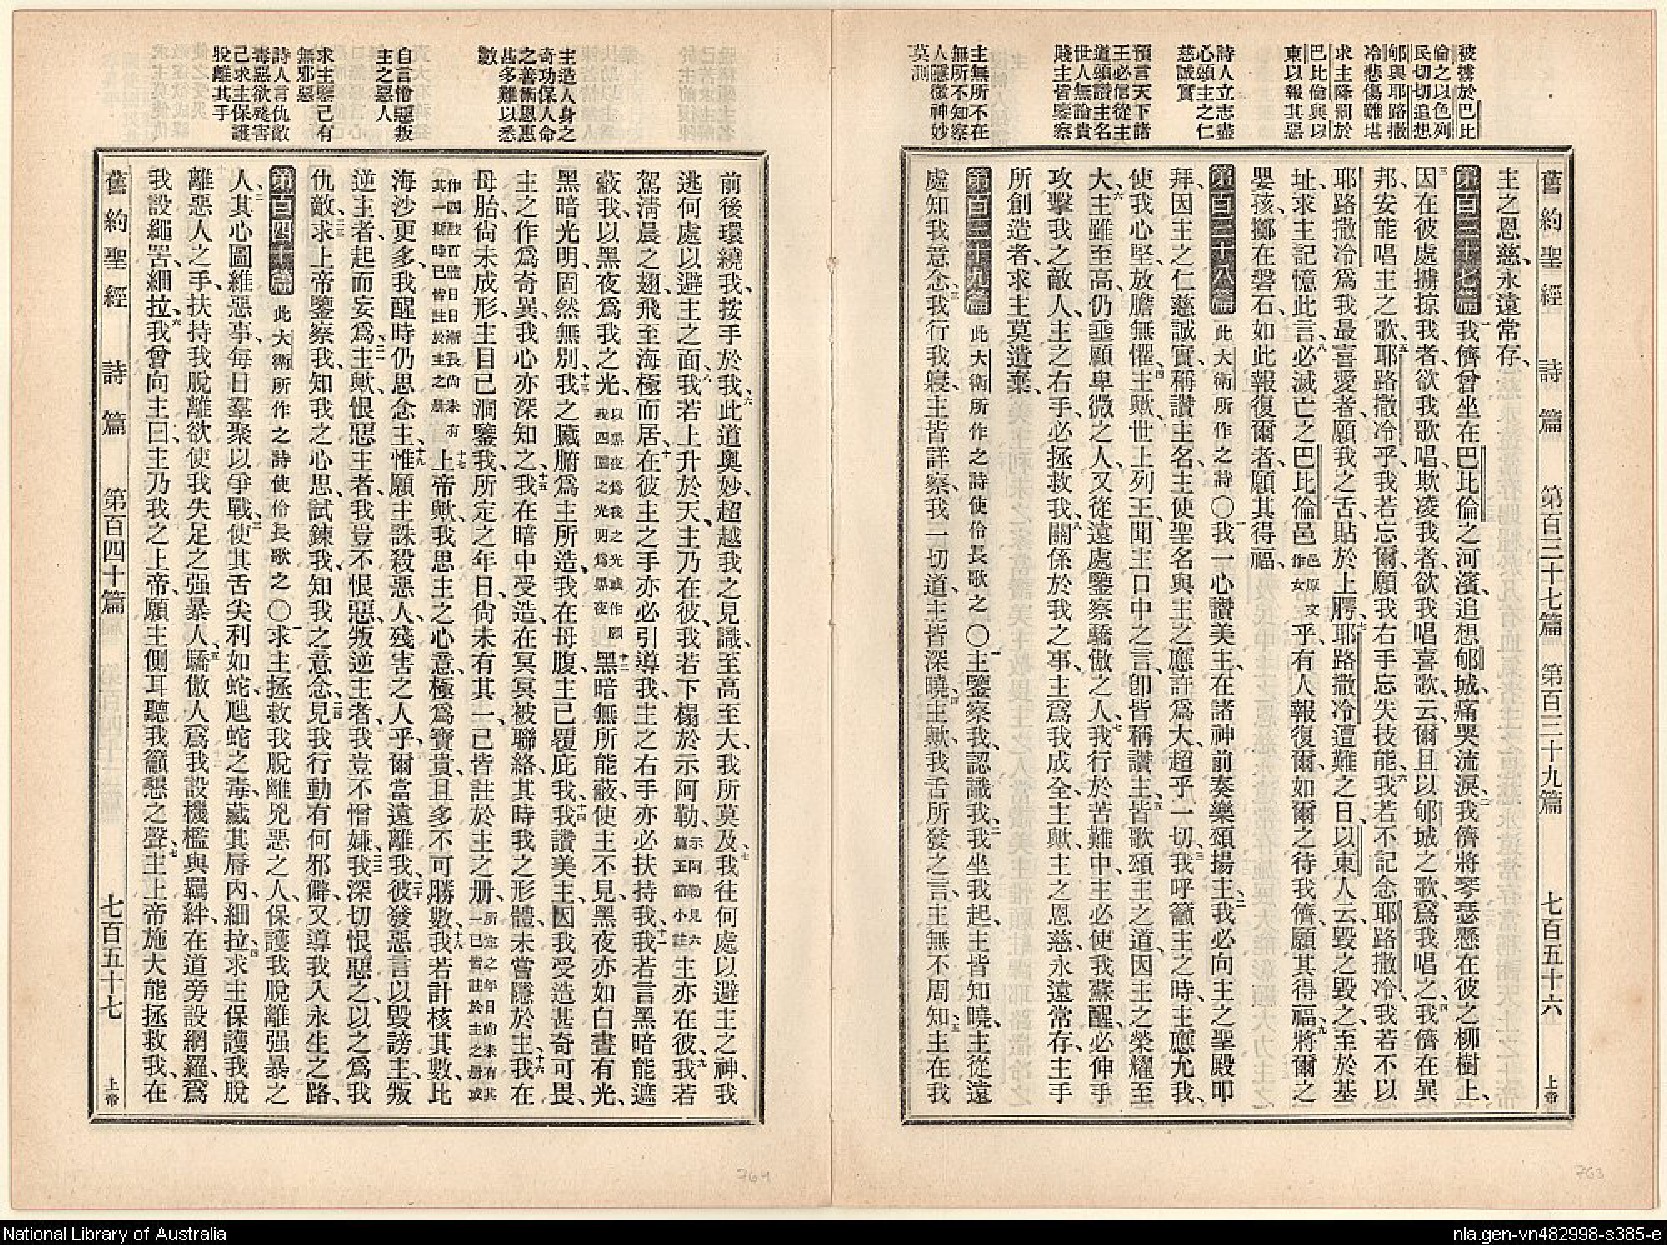 被擄於巴比
倫之以色列
民切切追想
郇與耶路撒
冷悲傷難堪
求主降罰於
巴比倫與以
東以報其惡
詩人立志盡
心頌主之仁
慈誠實
預言天下諸
王必信從主
道頌讚主名
世人無論貴
賤主皆鑒察
主無所不在
無所不知察
人隱微神妙
莫測
舊約聖經 詩篇 第百三十七篇 第百三十九篇 七百五十六 上帝
主之恩慈、永遠常存、
第百三十七篇 一我儕曾坐在巴比倫之河濱、追想郇城、痛哭流淚、二我儕將琴瑟懸在彼之柳樹上、
三因在彼處擄掠我者、欲我歌唱、欺凌我者、欲我唱喜歌、云、爾且以郇城之歌、爲我唱之、四我儕在異
邦、安能唱主之歌、五耶路撒冷乎、我若忘爾、願我右手忘失技能、六我若不記念耶路撒冷、我若不以
耶路撒冷爲我最喜愛者、願我之舌、貼於上腭、七耶路撒冷遭難之日、以東人云、毀之毀之、至於基
址、求主記憶此言、八必滅亡之巴比倫邑邑原文作女乎、有人報復爾、如爾之待我儕、願其得福、九將爾之
嬰孩、擲在磐石、如此報復爾者、願其得福、
第百三十八篇 此大衛所作之詩〇一我一心讚美主、在諸神前奏樂頌揚主、二我必向主之聖殿叩
拜、因主之仁慈誠實、稱讚主名、主使聖名與主之應許爲大、超乎一切、三我呼籲主之時、主應允我、
使我心堅、放膽無懼、四主歟、世上列王聞主口中之言、卽皆稱讚主、五皆歌頌主之道、因主之榮耀至
大、六主雖至高、仍垂顧卑微之人、又從遠處鑒察驕傲之人、七我行於苦難中、主必使我蘇醒、必伸手
攻擊我之敵人、主之右手、必拯救我、八關係於我之事、主爲我成全、主歟、主之恩慈、永遠常存、主手
所創造者、求主莫遺棄、
第百三十九篇 此大衛所作之詩使伶長歌之〇一主鑒察我、認識我、二我坐我起、主皆知曉、主從遠
處知我意念、三我行我寢、主皆詳察、我一切道、主皆深曉、四主歟、我舌所發之言、主無不周知、五主在我
主造人身之
奇功保人命
之善衛恩惠
甚多難以悉
數
自言憎惡叛
主之惡人
求主鑒己有
無邪惡
詩人言仇敵
毒惡欲殘害
己求主保護
脫離其手
前後環繞我、按手於我、六此道奧妙、超越我之見識、至高至大、我所莫及、七我往何處以避主之神、我
逃何處以避主之面、八我若上升於天、主乃在彼、我若下榻於示阿勒、示阿勒見六篇五節小註主亦在彼、九我若
駕清晨之翅、飛至海極而居、十在彼主之手亦必引導我、主之右手亦必扶持我、十一我若言黑暗能遮
蔽我、以黑夜爲我之光、以黑夜爲我之光或作願我四圍之光明爲黑夜十二黑暗無所能蔽、使主不見、黑夜亦如白晝有光、
黑暗光明、固然無別、十三我之臟腑爲主所造、我在母腹、主已覆庇我、十四我讚美主、因我受造、甚奇可畏、
主之作爲奇異、我心亦深知之、十五我在暗中受造、在冥冥被聯絡、其時我之形體、未嘗隱於主、十六我在
母胎、尙未成形、主目已洞鑒、我所定之年日、尙未有其一、已皆註於主之册、所定之年日尚未有其一已皆註於主之册或
作四肢百體日日漸長尚未有其一斯時已皆註於主之册十七上帝歟、我思主之心意、極爲寶貴、且多不可勝數、十八我若計核其數、比
海沙更多、我醒時仍思念主、十九惟願主誅殺惡人、殘害之人乎、爾當遠離我、二十彼發惡言以毀謗主、叛
逆主者、起而妄爲、二一主歟、恨惡主者、我豈不恨惡、叛逆主者、我豈不憎嫌、二二我深切恨惡之、以之爲我
仇敵、二三求上帝鑒察我、知我之心思、試鍊我、知我之意念、二四見我行動有何邪僻、又導我入永生之路、
第百四十篇 此大衛所作之詩使伶長歌之〇一求主拯救我脫離兇惡之人、保護我脫離强暴之
人、二其心圖維惡事、每日羣聚以爭戰、三使其舌尖利如蛇、虺蛇之毒藏其唇內、細拉、四求主保護我、脫
離惡人之手、扶持我脫離欲使我失足之强暴人、五驕傲人爲我設機檻與羈絆、在道旁設網羅、爲
我設繩罟、細拉、六我曾向主曰、主乃我之上帝、願主側耳聽我籲懇之聲、七主上帝、施大能拯救我、在
舊約聖經 詩篇 第百四十篇 七百五十七 上帝
764
763
National Library of Australia
nla.gen-vn482998-s385-e